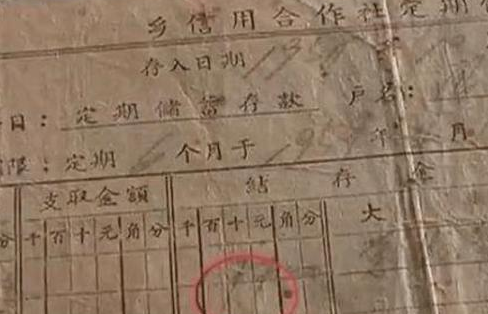 乡信用合作社定期
存入日期 195 年
目：定期儲蓄存款 户名：
限：定期 个月于 195 年 月
支取金額 結存金
分 千百十元角分 千百十元角分 大